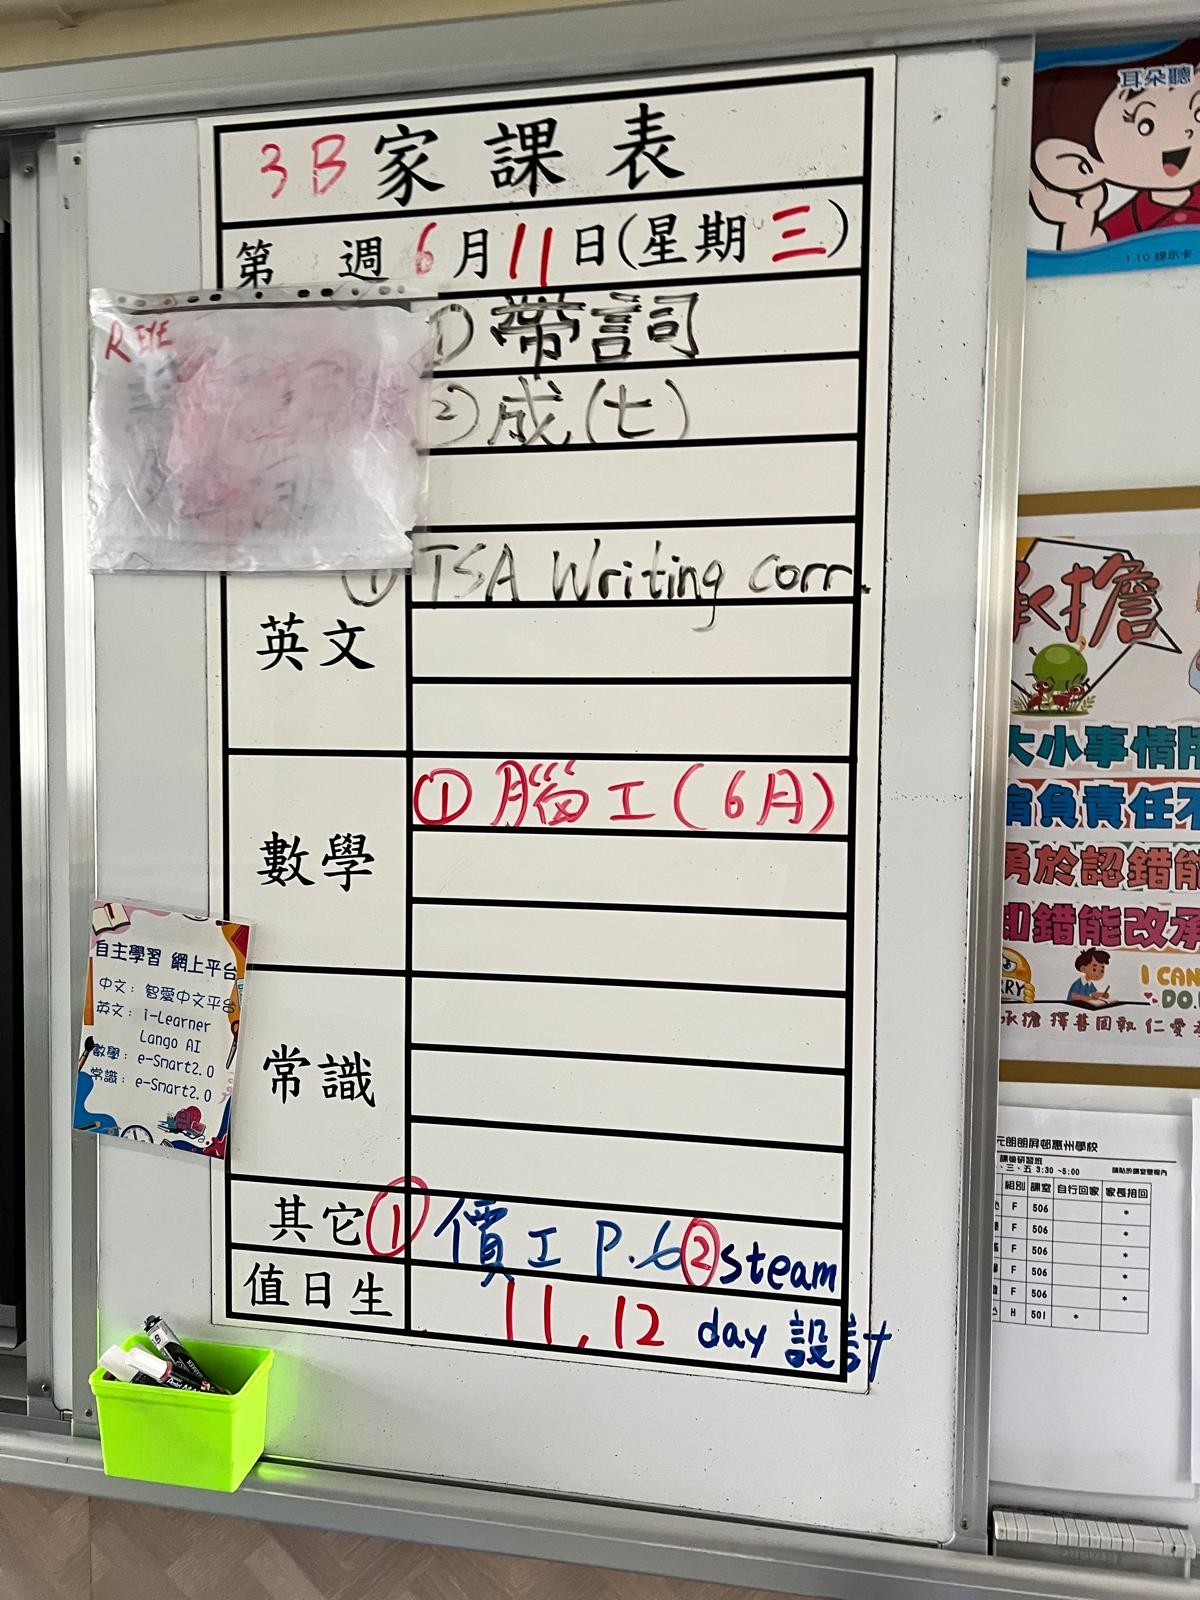 3B家課表
第 週 6月11日(星期三)
R EYE
① 帶詞
② 成(七)
英文
① TSA Writing corr.
數學
① 腦工(6月)
常識
其它
① 價工 P.6 ② steam
day 設計
值日生
11, 12
自主學習 網上平台
中文: 智愛中文平台
英文: i-Learner
Lango AI
數學: e-Smart2.0
常識: e-Smart2.0
耳朵聽
1.10 提示卡
承擔
大小事情
肩負責任不
勇於認錯能
知錯能改承
I CAN
DO.
承擔 擇善固執 仁愛
元朗朗屏邨惠州學校
課後研習班
、三、五 3:30 ~5:00
組別 課室 自行回家 家長接回
F 506 *
F 506 *
F 506 *
F 506 *
F 506 *
H 501 *